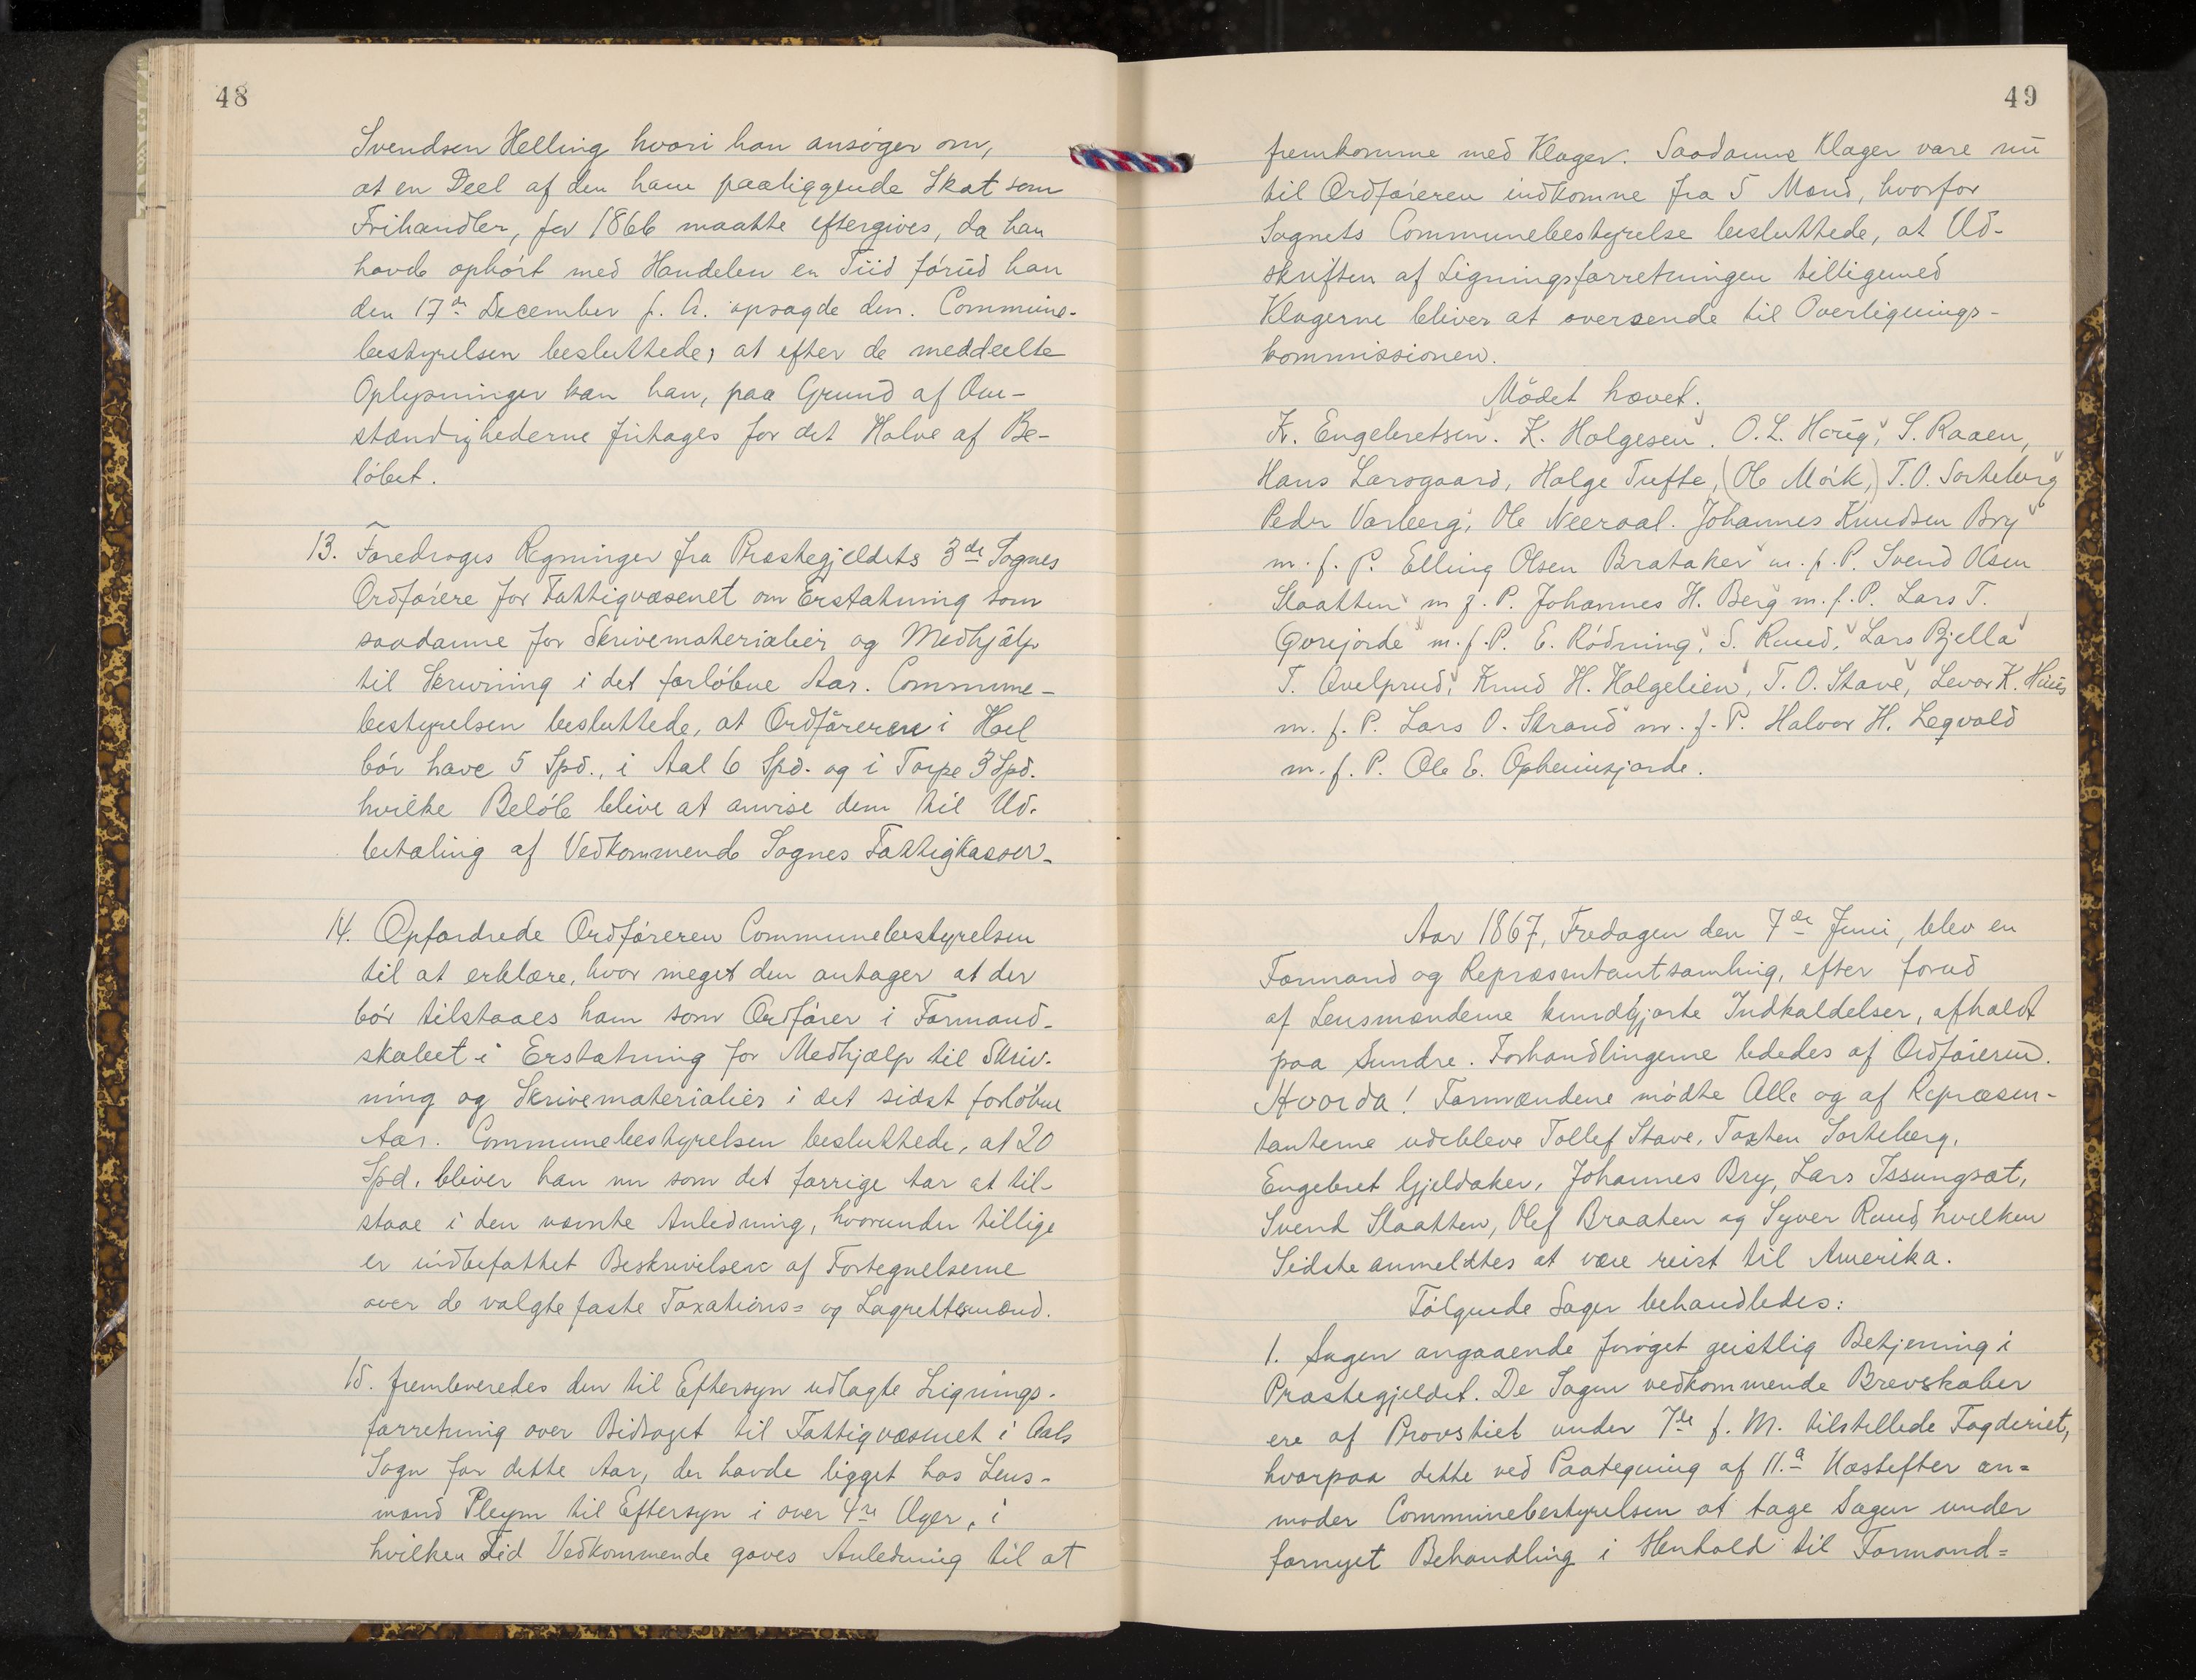 48
Svendsen Helling hvori han ansøger om,
at en Deel af den ham paaliggende Skat som
Frihandler, for 1866 maatte eftergives, da han
havde ophørt med Handelen en Tiid førud han
den 17de December f. A. opsagde den. Commune-
bestyrelsen besluttede, at efter de meddeelte
Oplysninger kan han, paa Grund af Om-
stændighederne fritages for det Halve af Be-
løbet.
13. Foredroges Regninger fra Præstegjeldets 3de Sognes
Ordførere for Fattigvæsenet om Erstatning som
saadanne for Skrivematerialier og Medhjælp
til Skrivning i det forløbne Aar. Commune-
bestyrelsen besluttede, at Ordføreren i Hoel
bør have 5 Spd., i Aal 6 Spd. og i Torpe 3 Spd.
hvilke Beløb blive at anvise dem til Ud-
betaling af Vedkommende Sognes Fattigkasser.
14. Opfordrede Ordføreren Communebestyrelsen
til at erklære, hvor meget den antager at der
bør tilstaaes ham som Ordfører i Formand-
skabet i Erstatning for Medhjælp til Skriv-
ning og Skrivematerialier i det sidst forløbne
Aar. Communebestyrelsen besluttede, at 20
Spd. bliver han nu som det forrige Aar at til-
staae i den nævnte Anledning, hvorunder tillige
er indbefattet Beskrivelsen af Fortegnelserne
over de valgte faste Taxations= og Lagrettesmænd.
15. fremleveredes den til Eftersyn udlagte Lignings-
forretning over Bidraget til Fattigvæsenet i Aals
Sogn for dette Aar, der havde ligget hos Lens-
mand Pleym til Eftersyn i over 4re Uger, i
hvilken Tid Vedkommende gaves Anledning til at
49
fremkomme med Klager. Saadanne Klager vare nu
til Ordføreren indkomne fra 5 Mænd, hvorfor
Sognets Communebestyrelse besluttede, at Ud-
skriften af Ligningsforretningen tilligemed
Klagerne bliver at oversende til Overlignings-
kommissionen.
Mødet hævet.
K. Engebretsen. K. Holgesen. O. L. Horig, S. Raaen,
Hans Larsgaard, Holge Tufte, (Ole Mørk,) T. O. Sorteberg
Peder Varberg, Ole Neeraal. Johannes Knudsen Bry
m. f. P. Elling Olsen Brataker m. f. P. Svend Olsen
Slaatten m. f. P. Johannes H. Berg m. f. P. Lars T.
Gurejorde m. f. P. E. Rødning, S. Ruud, Lars Bjella
T. Qvelprud, Knud H. Holgelien, T. O. Stave, Levor K. Huus
m. f. P. Lars O. Strand m. f. P. Halvor H. Legvold
m. f. P. Ole E. Opheimsjorde.
Aar 1867, Fredagen den 7de Juni, blev en
Formand og Repræsentantsamling, efter forud
af Lensmændene kundgjorte Indkaldelser, afholdt
paa Sundre. Forhandlingerne lededes af Ordføreren.
Hvorda! Formændene mødte Alle og af Repræsen-
tanterne udebleve Tollef Stave, Torsten Sorteberg,
Engebret Gjeldaker, Johannes Bry, Lars Issungsæt,
Svend Slaatten, Olef Braaten og Syver Ruud, hvilken
Sidste anmeldtes at være reist til Amerika.
Følgende Sager behandledes:
1. Sagen angaaende forøget geistlig Betjening i
Præstegjeldet. De Sagen vedkommende Brevskaber
ere af Provstiet under 7de f. M. tilstillede Fogderiet,
hvorpaa dette ved Paategning af 11.a Næstefter an=
moder Communebestyrelsen at tage Sagen under
fornyet Behandling i Henhold til Formand=